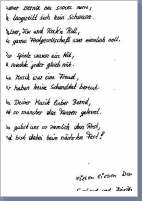 langweilt sich kein Schwein.
und Rock'n Roll,
ganze Festgesellschaft war ziemlich voll.
Spiele waren ein Hit,
machte jeder gleich mit.
Musik war eine Freud,
haben keine Sekunde bereut.
Deiner Musik lieber Bernd,
so mancher das Tanzen gelernt.
gabst uns so ziemlich den Rest,
bist dabei beim nächsten Fest!
Vielen lieben Dank
und